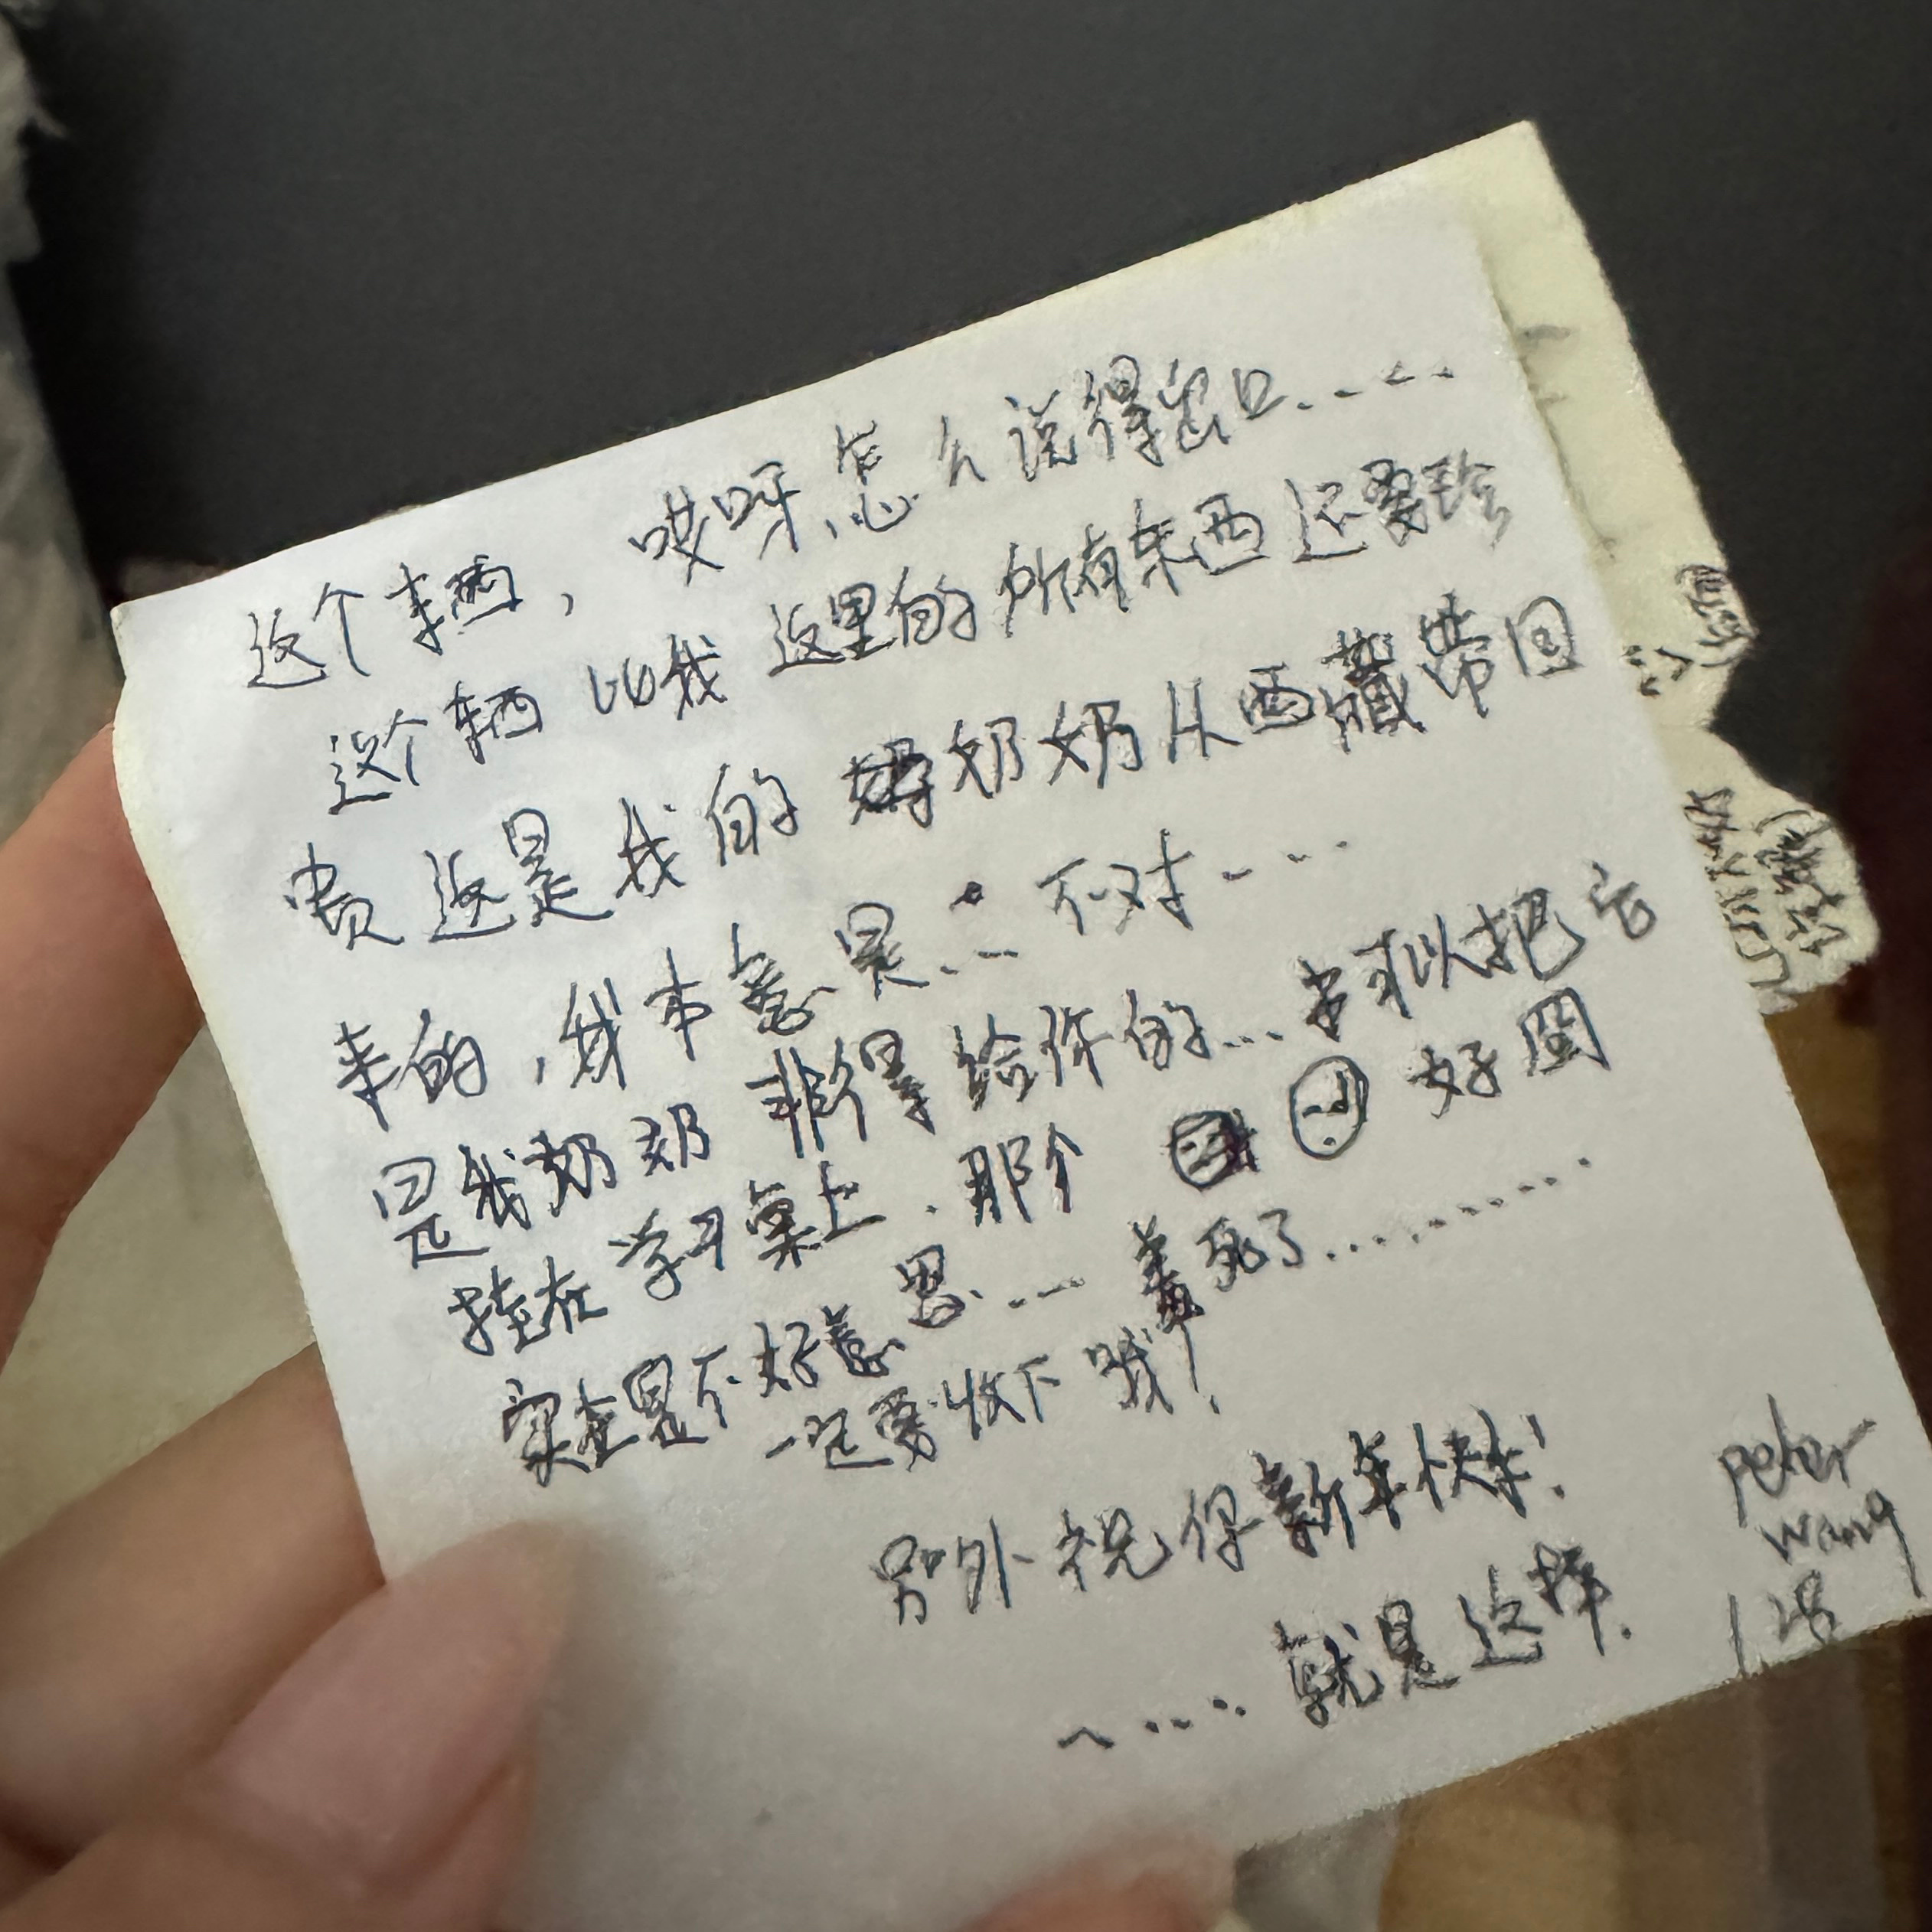 这个东西，哎呀，怎么说得出口……
这个东西比我这里的所有东西还要珍
贵 这是我的奶奶从西藏带回
来的，我本意是…… 不对……
是我奶奶非得给你的…你可以把它
挂在学习桌上. 那个 好
实在是不好意思…… 羞死了………
一定要收下哦！
另外祝你新年快乐！
…… 就是这样.
peter
wang